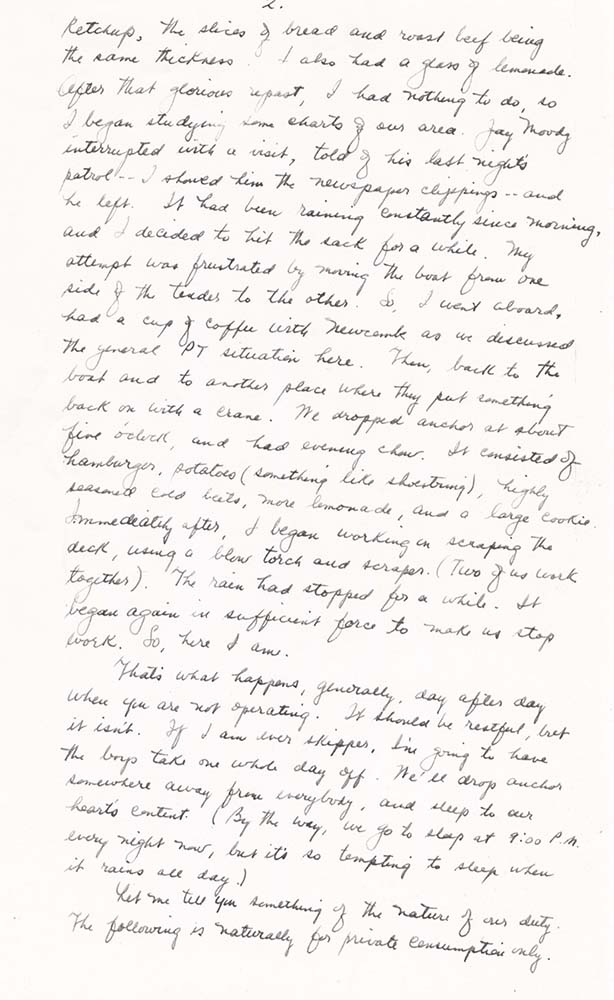 2.
Ketchup, the slices of bread and roast beef being
the same thickness. I also had a glass of lemonade.
After that glorious repast, I had nothing to do, so
I began studying some charts of our area. Jay Moody
interrupted with a visit, told of his last night's
patrol -- I showed him the newspaper clippings -- and
he left. It had been raining constantly since morning,
and I decided to hit the sack for a while. My
attempt was frustrated by moving the boat from one
side of the tender to the other. So, I went aboard,
had a cup of coffee with Newcomb as we discussed
the general PT situation here. Then, back to the
boat and to another place where they put something
back on with a crane. We dropped anchor at about
five o'clock, and had evening chow. It consisted of
hamburger, potatoes (something like shoestring), highly
seasoned cold beets, more lemonade, and a large cookie.
Immediately after, I began working on scraping the
deck, using a blow torch and scraper. (Two of us work
together). The rain had stopped for a while. It
began again in sufficient force to make us stop
work. So, here I am.
That's what happens, generally, day after day
when you are not operating. It should be restful, but
it isn't. If I am ever skipper, I'm going to have
the boys take one whole day off. We'll drop anchor
somewhere away from everybody, and sleep to our
heart's content. (By the way, we go to sleep at 9:00 P.M.
every night now, but it's so tempting to sleep when
it rains all day.)
Let me tell you something of the nature of our duty.
The following is naturally for private consumption only.